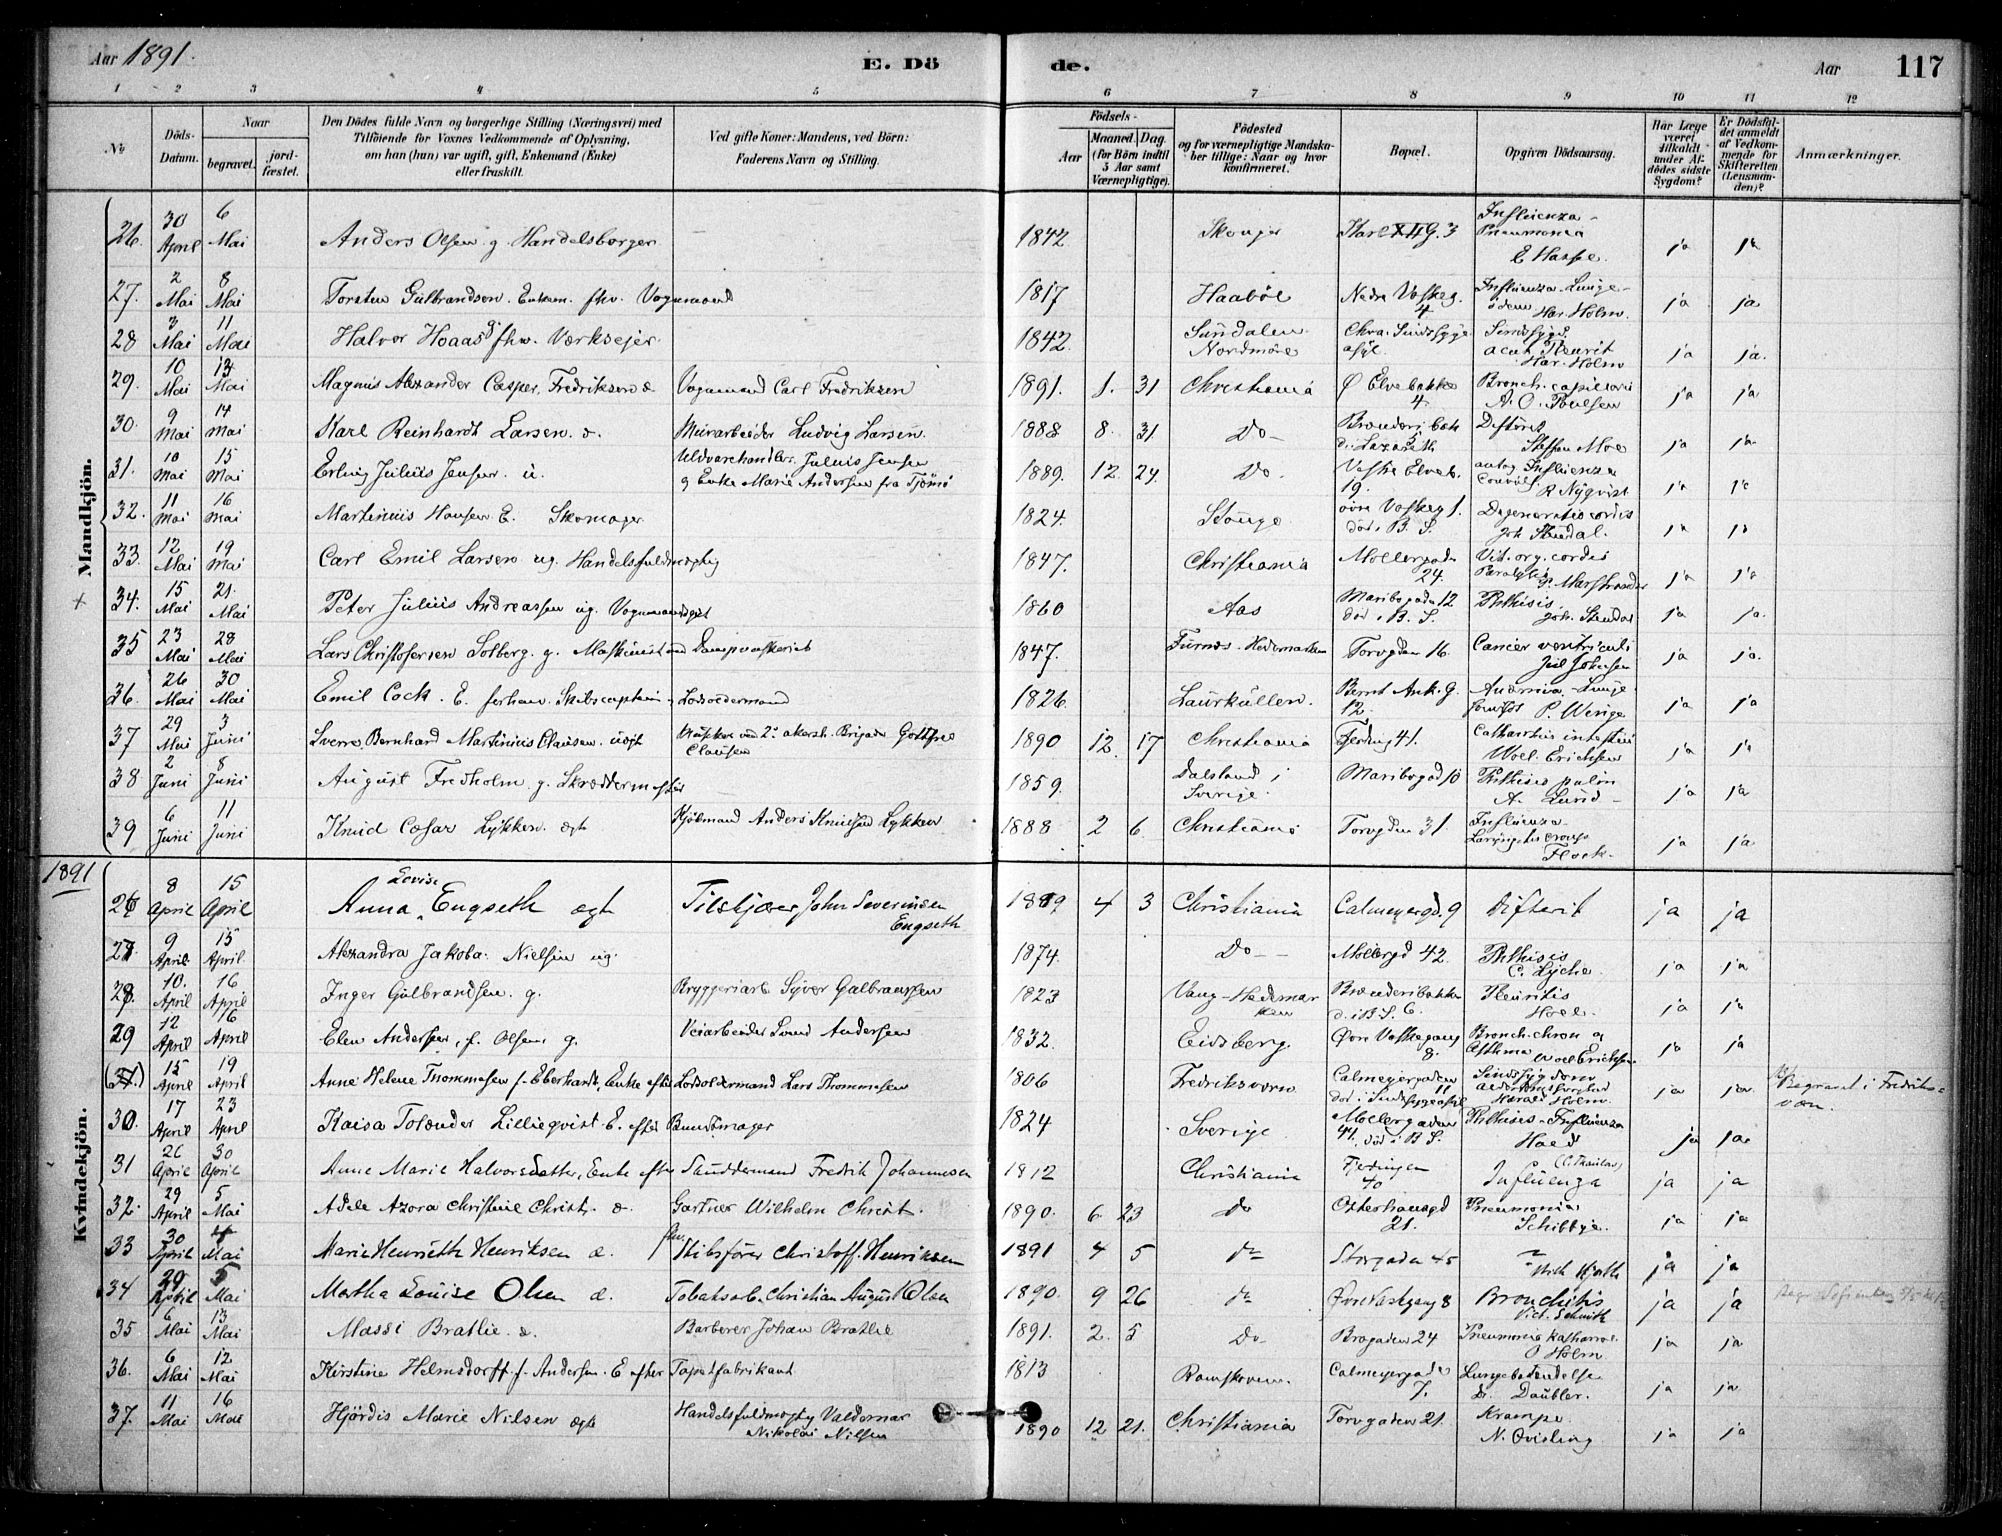 Aar 1891. E. Døde. Aar 117
1 2 3 4 5 6 7 8 9 10 11 12
No Döds-Datum. Naar begravet. jordfæstet. Den Dödes fulde Navn og borgerlige Stilling (Næringsvei) med Tilföiende for Voxnes Vedkommende af Oplysning, om han (hun) var ugift, gift, Enkemand (Enke) eller fraskilt. Ved gifte Koner: Mandens, ved Börn: Faderens Navn og Stilling. Födsels- Aar Maaned. Dag. (for Börn indtil 5 Aar samt Værnepligtige). Födested og for værnepligtige Mandskaber tillige: Naar og hvor konfirmeret. Bopæl. Opgiven Dödsaarsag. Har Læge været tilkaldt under Afdödes sidste Sygdom? Er Dödsfaldet anmeldt af Vedkommende for Skifteretten (Lensmanden)? Anmærkninger.
Mandkjön.
26. 30 April 6 Mai Anders Olsen g. Handelsborger 1842 Karl XII G. 3 Influenza-Pneumonia ja ja
27. 2 Mai 8 Mai Torsten Gulbrandsen. Enkem. fhv. Vognmand 1817 Haaböl Nedre Vaskeg. 4 Influenza-Lungeödem Har. Holm. ja ja
28 3 Mai 11 Mai Halvor Hoaas g fhv. Værksejer 1842. Sundalen Nordmöre Chra. Sindssygeasyl Sindssygd. acut Pleurit Har. Holm ja ja.
29. 10 Mai 13 Mai Magnus Alexander Casper Fredriksen Vognmand Carl Fredriksen 1891. 1. 31 Christiania Ø Elvebakke 4. Bronch. capillaris A. O. Poulsen ja ja
30. 9 Mai 14 Mai Karl Reinhardt Larsen Murarbeider Ludvig Larsen. 1888 8. 31 Do Difterit Steffen Moe ja ja
31. 10 Mai 15 Mai Erling Julius Jensen u. Uldvarehandler Julius Jensen g Enke Marie Andersen fra Tjömö 1889. 12. 24. Do. Vestre Elveb. 19. Influenza R Nyqvist ja ja
32. 11 Mai 16 Mai Martinius Hansen E. Skomager 1824. Övre Vaskeg 1. död i B. S. Degeneratio cordis ja ja
33. 12 Mai 19 Mai Carl Emil Larsen ug. Handelsfuldmægtig 1847. Christiania Mollergaden 24. Vit. org. cordis ja ja
34. 15 Mai 21. Mai Peter Julius Andreassen ug. Vognmand 1860 Aas Maribogaden 12 död i B. S. Phthisis ja ja.
35 23 Mai 28 Mai Lars Christofersen Solberg. g. Maskinist ved Dampvaskeriet 1847. Furnes. Hedemarken Torvgden 16. Cancer ventriculi ja ja.
36. 26 Mai 30 Mai Emil Cock. E. forhenv. Skibscaptein Lodsoldermand 1826. Laurkullen. Bernt Ank. G. 12. P. Wenge ja ja
37 29 Mai 3 Juni Sverre Bernhard Martinius Clausen. uægt Clausen 1890 12. 17 Christiania Fjerding 41. Woel. Erichsen ja ja
38 2 Juni 8 Juni August Fredholm g. Skræddermester 1859. Dalsland i Sverige. Maribogad 10 Phthisis pulm A. Lund ja ja
39 6 Juni 11 Juni Knud Cæsar Lykken. ægt Anders Knudsen Lykken 1888 2 6. Christiania Torvgden 31. Influenza-Laryngitis croup Flock. ja ja
1891
Kvindekjön.
26 8 April 15 April Anna Lovise Engseth ægte Tilskjærer John Severinsen Engseth 1889 4 3 Christiania Calmeyergd. 9 Difterit ja ja
27. 9 April. 15 April. Alexandra Jakoba. Nielsen ug. 1874. Do Mollergd 42. Phthisis C. Lyche. ja ja
28. 10. April 16 April Inger Gulbrandsen. g. Bryggeriarb. Syver Gulbrandsen 1823 Vang-Hedemarken Brænderibakken 6. Pleuritis Hoel. ja ja
29 12 April 16 April Elen Andersen, f. Olsen g. Veiarbeider Andersen 1832. Eidsberg Övre Vaskegang 8. Bronch. chron og Asthma Woel Erichsen ja ja
15 April 19 April Anne Helene Thommesen f. Eberhardt, Enke efter Lodsoldermand Lars Thommesen 1806 Fredriksværn Calmeyergaden 11 död i Sindssygeasyl Sindssygdom Harald Holm. ja ja Begravet i Fredriksværn.
30. 17 April 23 April Kaisa Lilliequist. E. efter Buntmager 1824 Sverige Mollergaden 41. död i B S. Phthisis-Influenza Hoel ja ja
31 26 April 30 April Anne Marie Halvorsdatter, Enke efter Fredrik Johannesen 1812 Christiania Fjerdingen 40 Influenza ja ja
32. 29 April 5 Mai Adele Azora Christine Christ. Gartner Wilhelm Christ. 1890. 6. 23 Do Osterhausgd 21. Pneumonia Schibbye. ja ja
33 30 April 4 Mai Marie Henriette Henriksen æ. fhv. Skibsförer Christoff. Henriksen 1891 4 5 do Storgaden 45 ja ja
34 29. April 5 Mai Martha Louise Olsen æ. Tobaksarb. Christian August Olsen 1890. 9 26 do Övre Vaskgang 8 Bronchitis Vict. Schmith ja ja
35 6 Mai 13 Mai Massi Bratlie. Barberer Johan Bratlie 1891. 2. 5 Do Brogaden 24 Pneumonia katharral. Holm ja ja
36. 6 Mai 12 Mai Kirstine Helmsdorff f. Andersen. E efter Tapetfabrikant 1813 Calmeyergaden 7. Lungebetændelse Daubler. ja ja
37. 11 Mai 16 Mai Hjördis Marie Nilsen ægte Handelsfuldmægtig Valdemar Nikolai Nilsen 1890 12 21. Christiania Torvgaden 21. Krampe. N. Qvisling ja ja